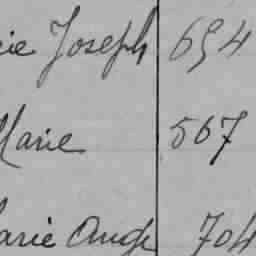 ie Joseph 694
Marie 567
arie Ange 704